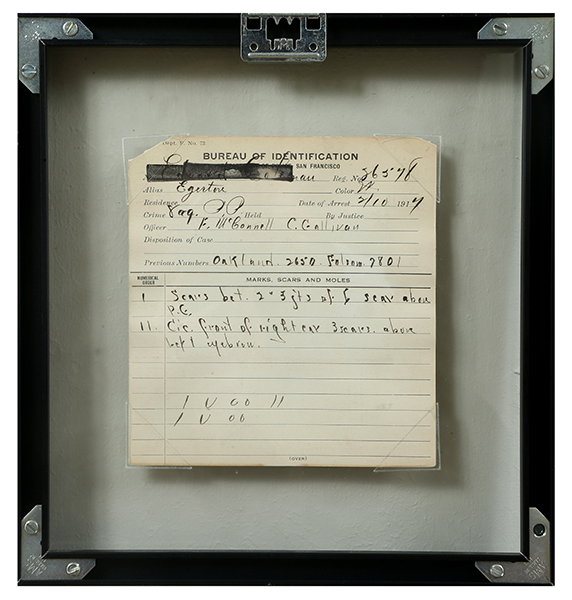 Dept. F. No. 73
BUREAU OF IDENTIFICATION
SAN FRANCISCO
Reg. No. 36578
Alias Egerton Color W.
Residence Date of Arrest 2/10 1917
Crime Vag. Held By Justice
Officer F. McConnell C. Gallivan
Disposition of Case
Previous Numbers. Oakland. 2650. Folsom. 7801
NUMERICAL ORDER MARKS, SCARS AND MOLES
1 Scars bet. 2 + 3 jts of scar above
P.C.
11. Cic. front of right ear 3 scars. above
left eyebrow.
1 U 00 11
1 U 00
(OVER)